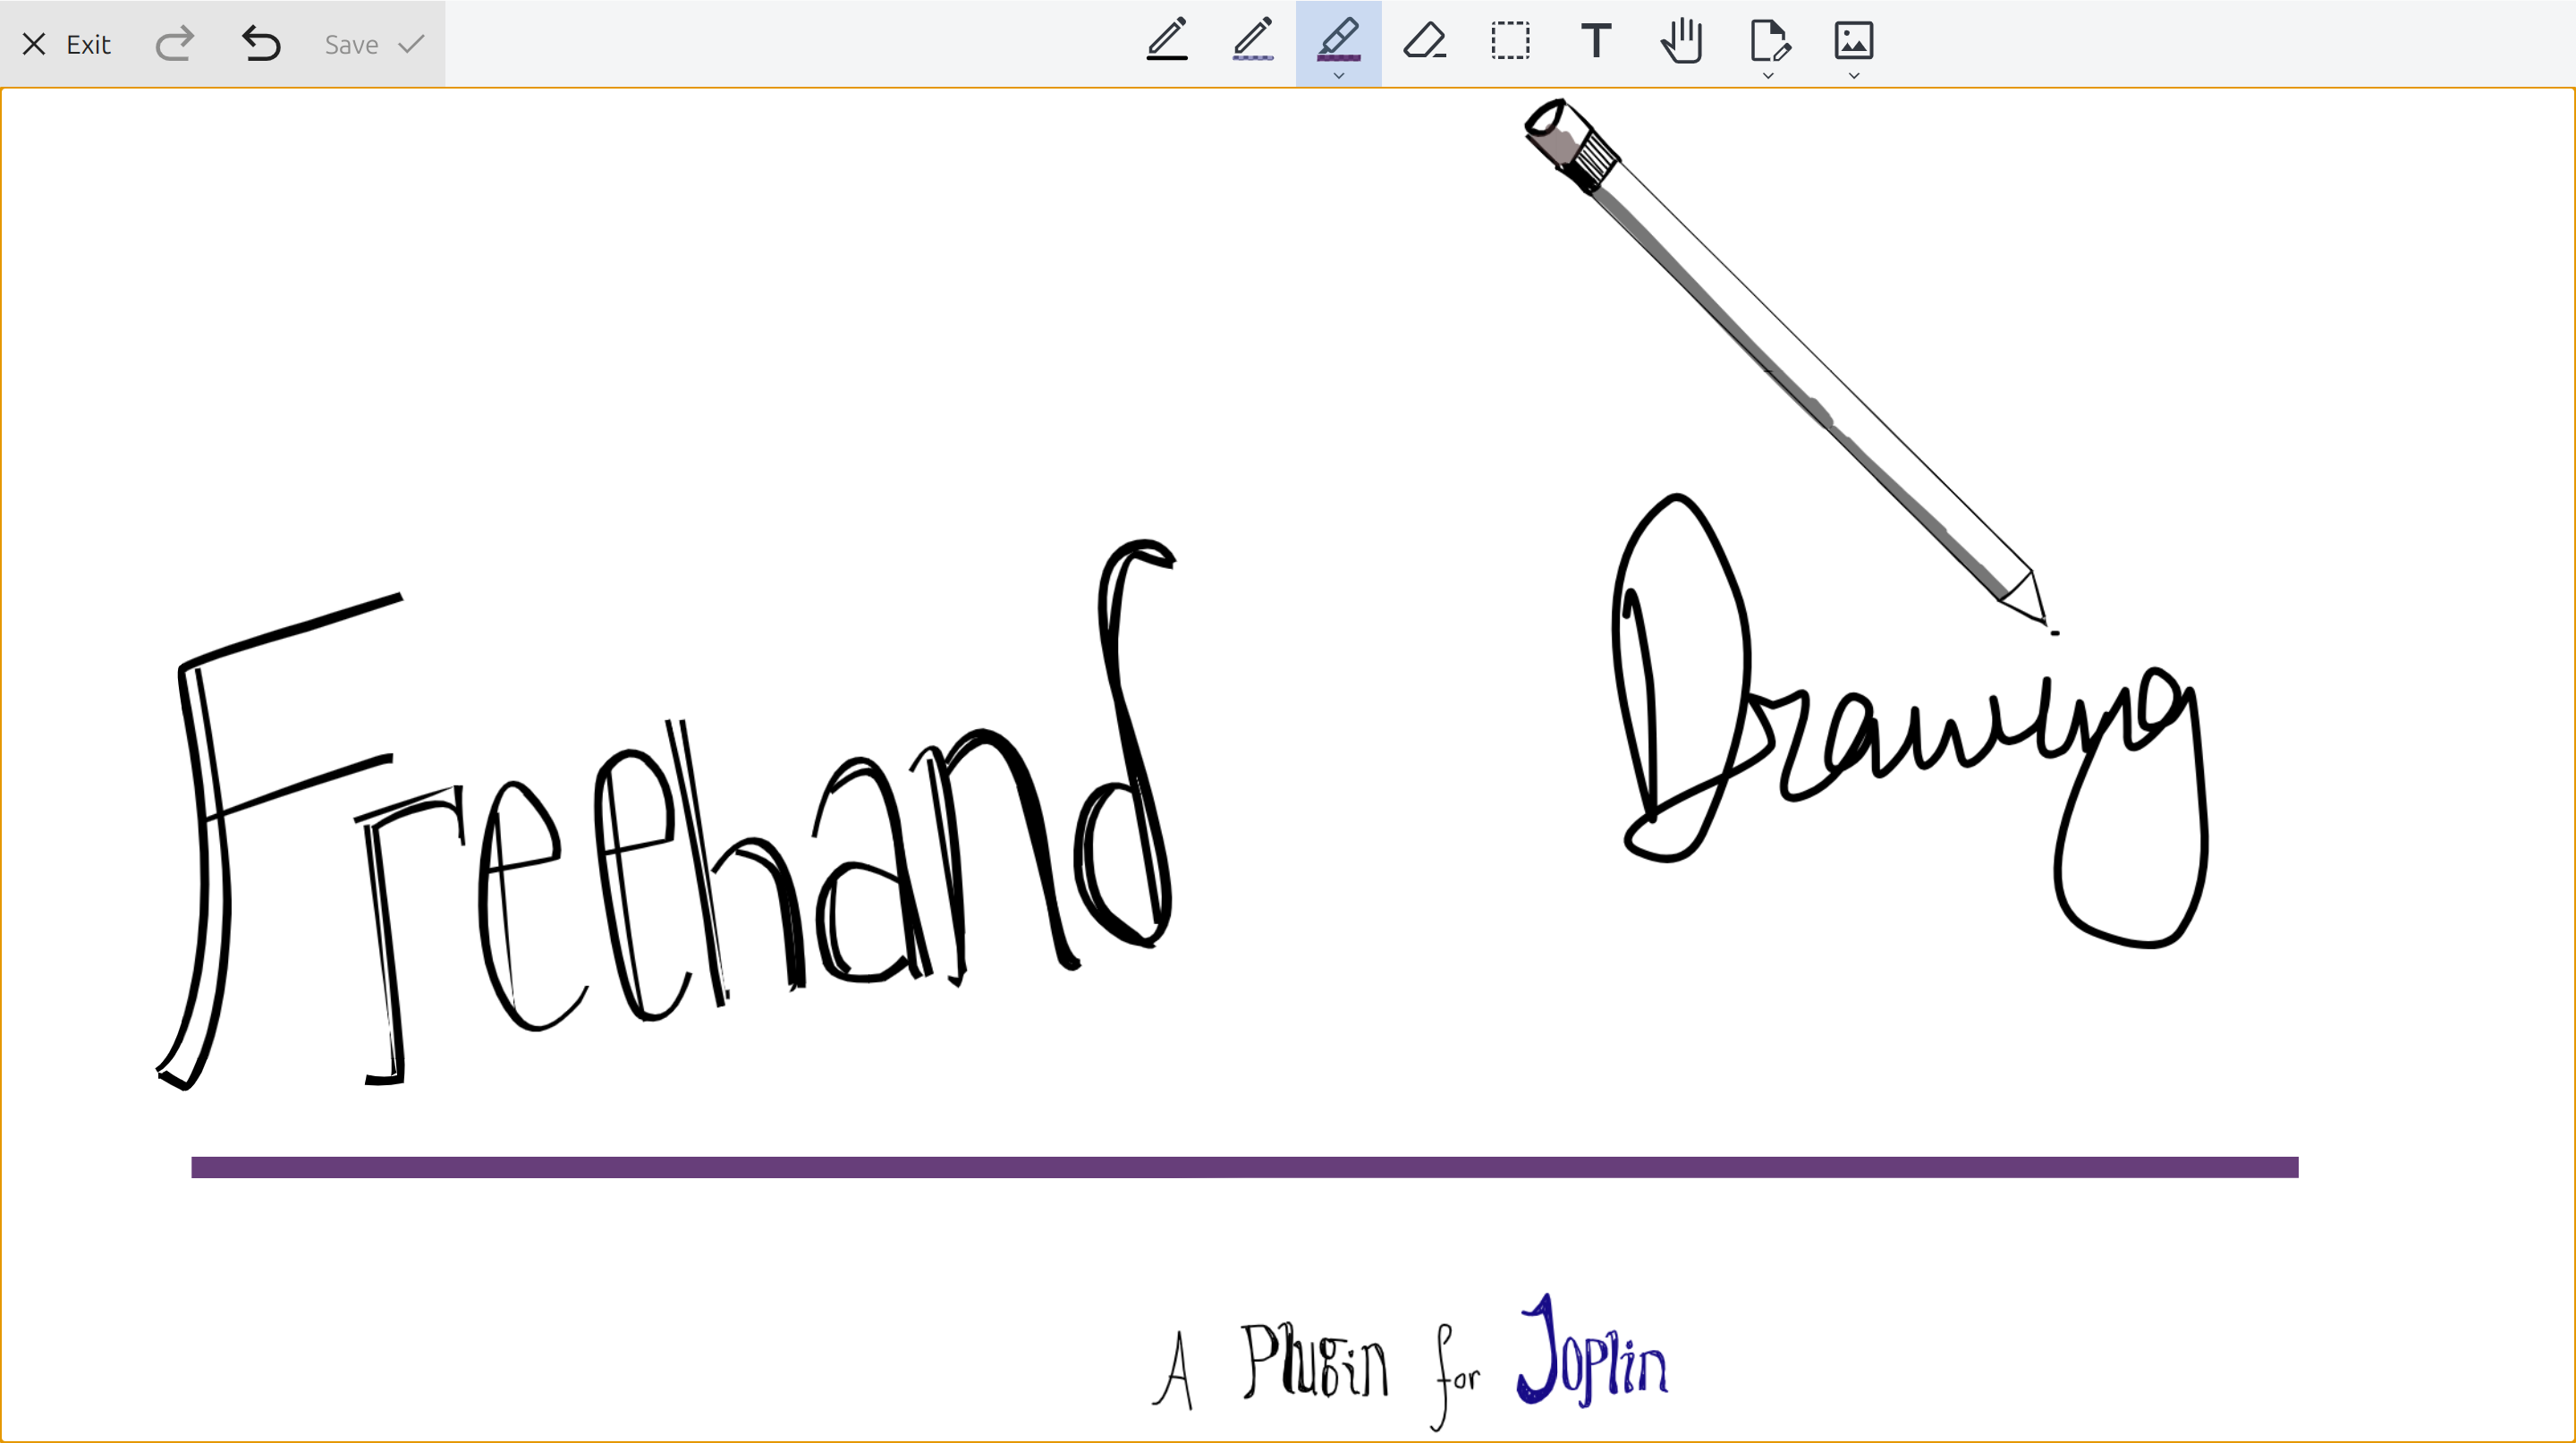 Exit Save
Freehand Drawing
A Plugin for Joplin